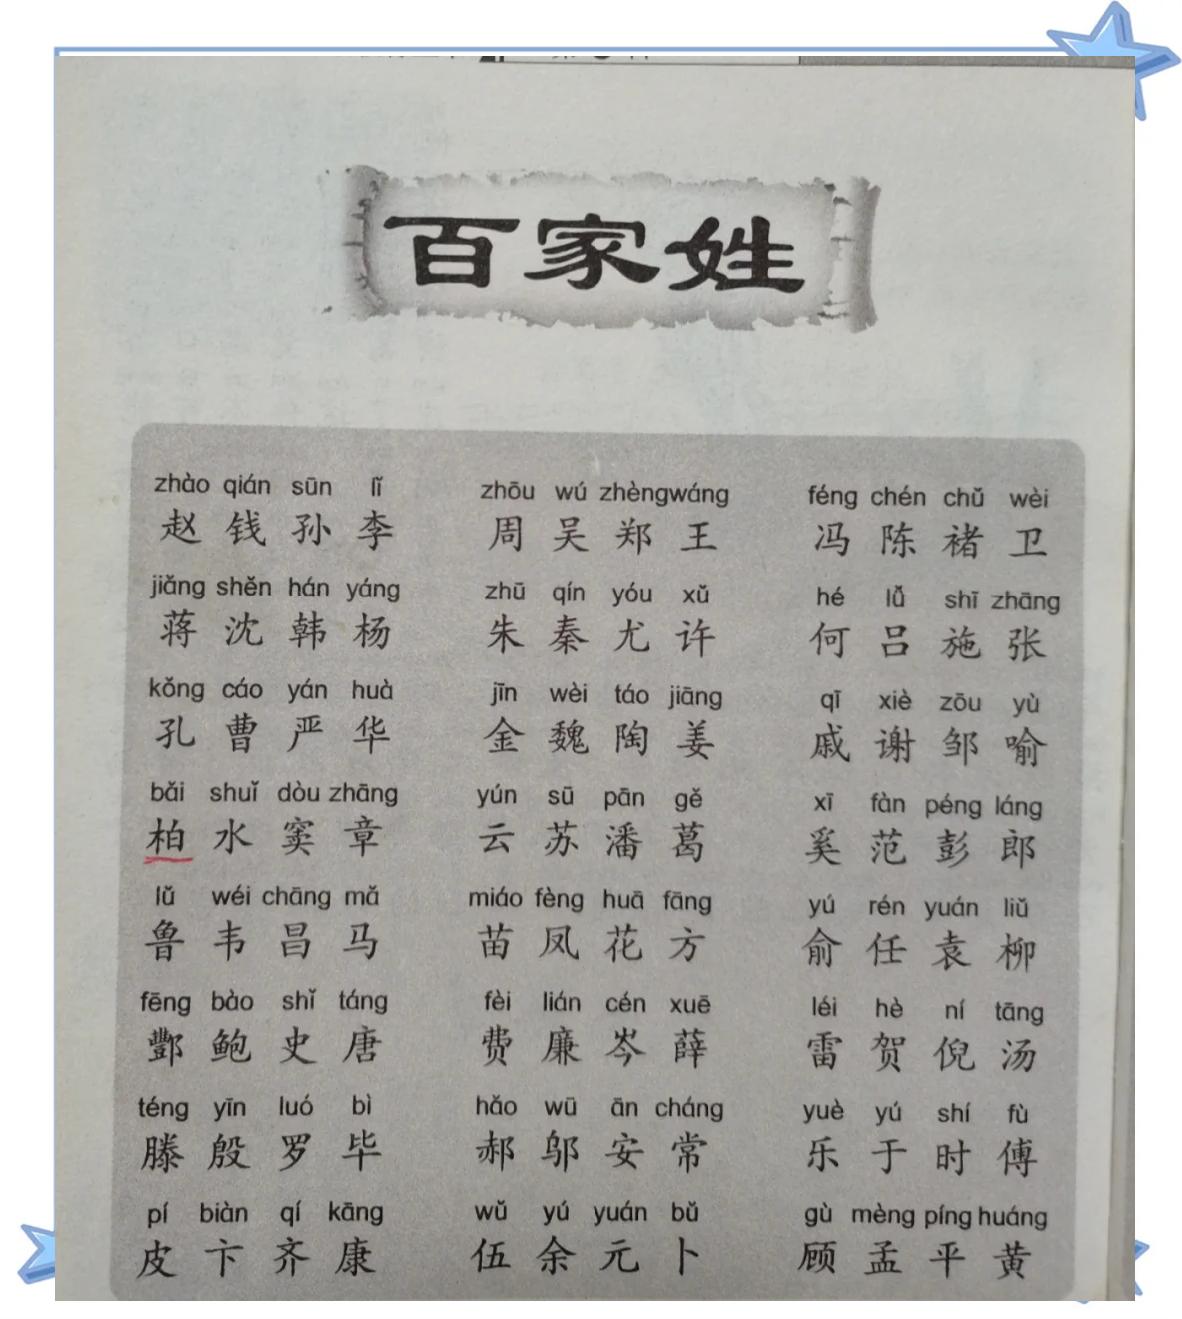 百家姓
zhào qián sūn lǐ zhōu wú zhèng wáng féng chén chǔ wèi
赵 钱 孙 李 周 吴 郑 王 冯 陈 褚 卫
jiǎng shěn hán yáng zhū qín yóu xǔ hé lǚ shī zhāng
蒋 沈 韩 杨 朱 秦 尤 许 何 吕 施 张
kǒng cáo yán huà jīn wèi táo jiāng qī xiè zōu yù
孔 曹 严 华 金 魏 陶 姜 戚 谢 邹 喻
bǎi shuǐ dòu zhāng yún sū pān gě xī fàn péng láng
柏 水 窦 章 云 苏 潘 葛 奚 范 彭 郎
lǔ wéi chāng mǎ miáo fèng huā fāng yú rén yuán liǔ
鲁 韦 昌 马 苗 凤 花 方 俞 任 袁 柳
fēng bào shǐ táng fèi lián cén xuē léi hè ní tāng
酆 鲍 史 唐 费 廉 岑 薛 雷 贺 倪 汤
téng yīn luó bì hǎo wū ān cháng yuè yú shí fù
滕 殷 罗 毕 郝 邬 安 常 乐 于 时 傅
pí biàn qí kāng wǔ yú yuán bǔ gù mèng píng huáng
皮 卞 齐 康 伍 余 元 卜 顾 孟 平 黄